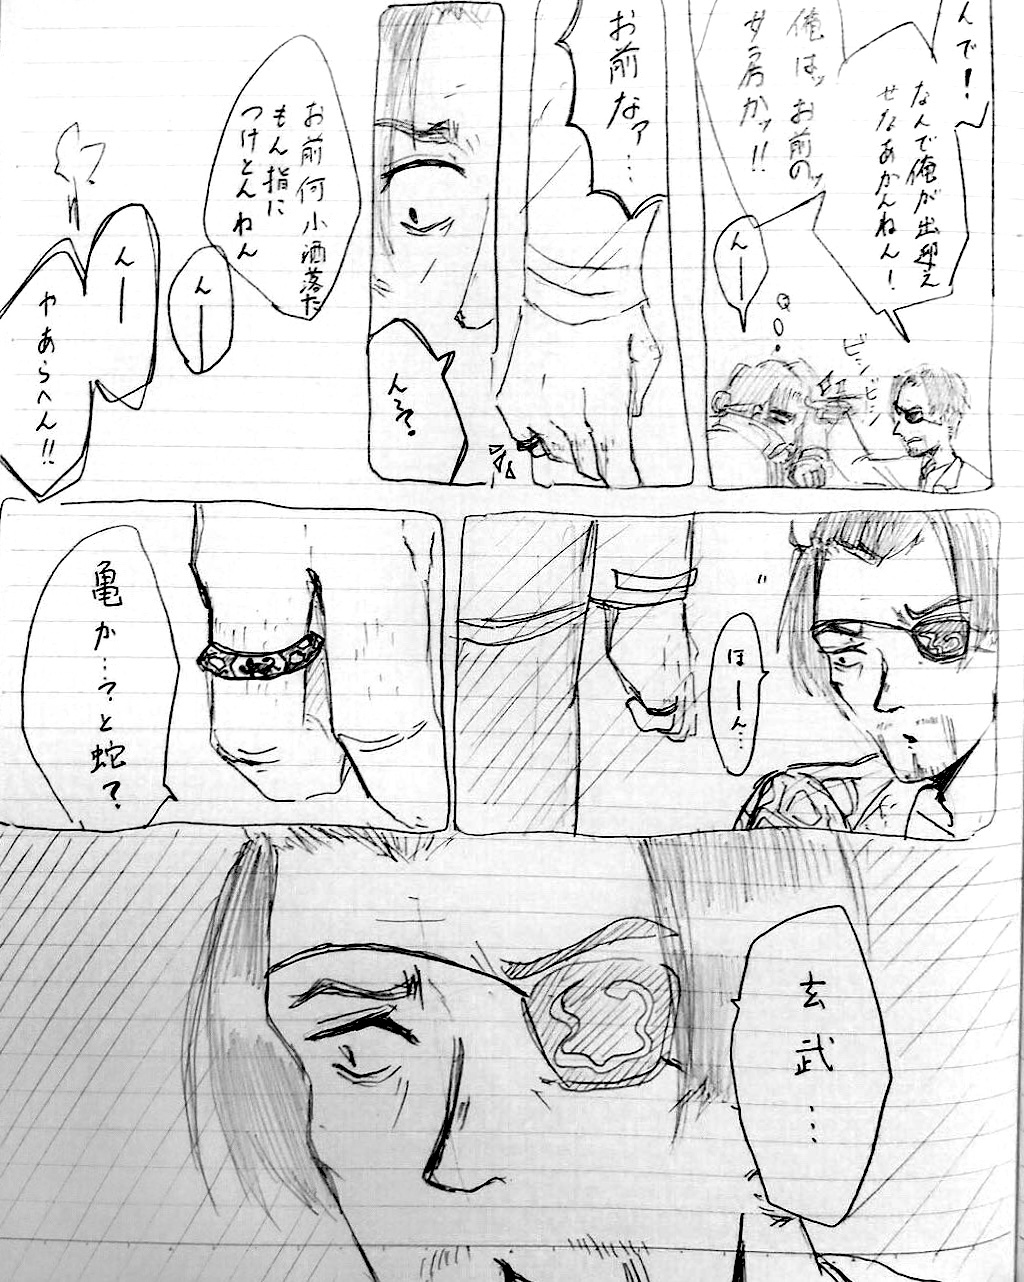 んで！
なんで俺が出迎え
せなあかんねん！
俺はッお前のッ
女房かッ!!
んーー
ビシ
ビシ
お前なァ…
ん？
お前何小洒落た
もん指に
つけとんねん
んーー
んーー
やあらへん!!
ほーーん…
亀か…？と蛇？
玄武…